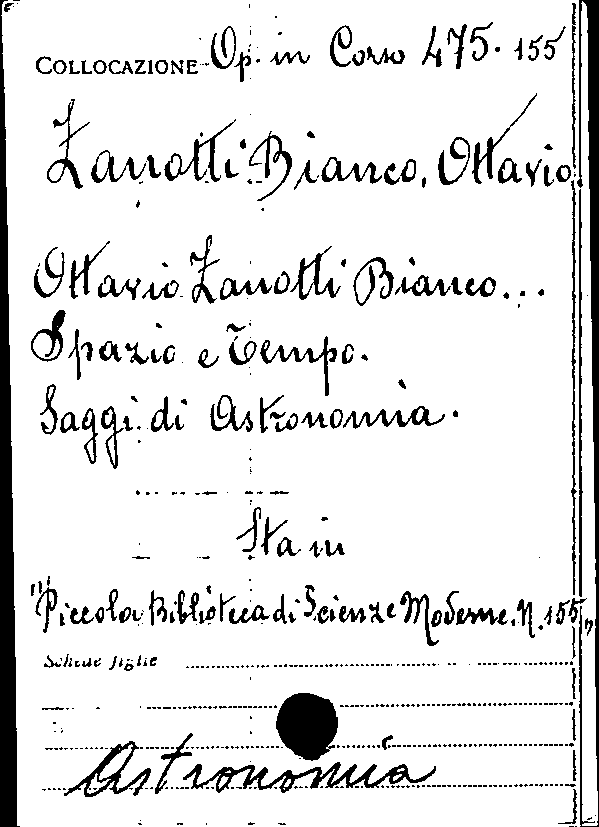 COLLOCAZIONE Op. in Corso 475. 155
Zanotti Bianco, Ottavio.
Ottavio Zanotti Bianco...
Spazio e Tempo.
Saggi di Astronomia.
Sta in
"Piccola Biblioteca di Scienze Moderne. N. 155"
Schede figlie
Astronomia